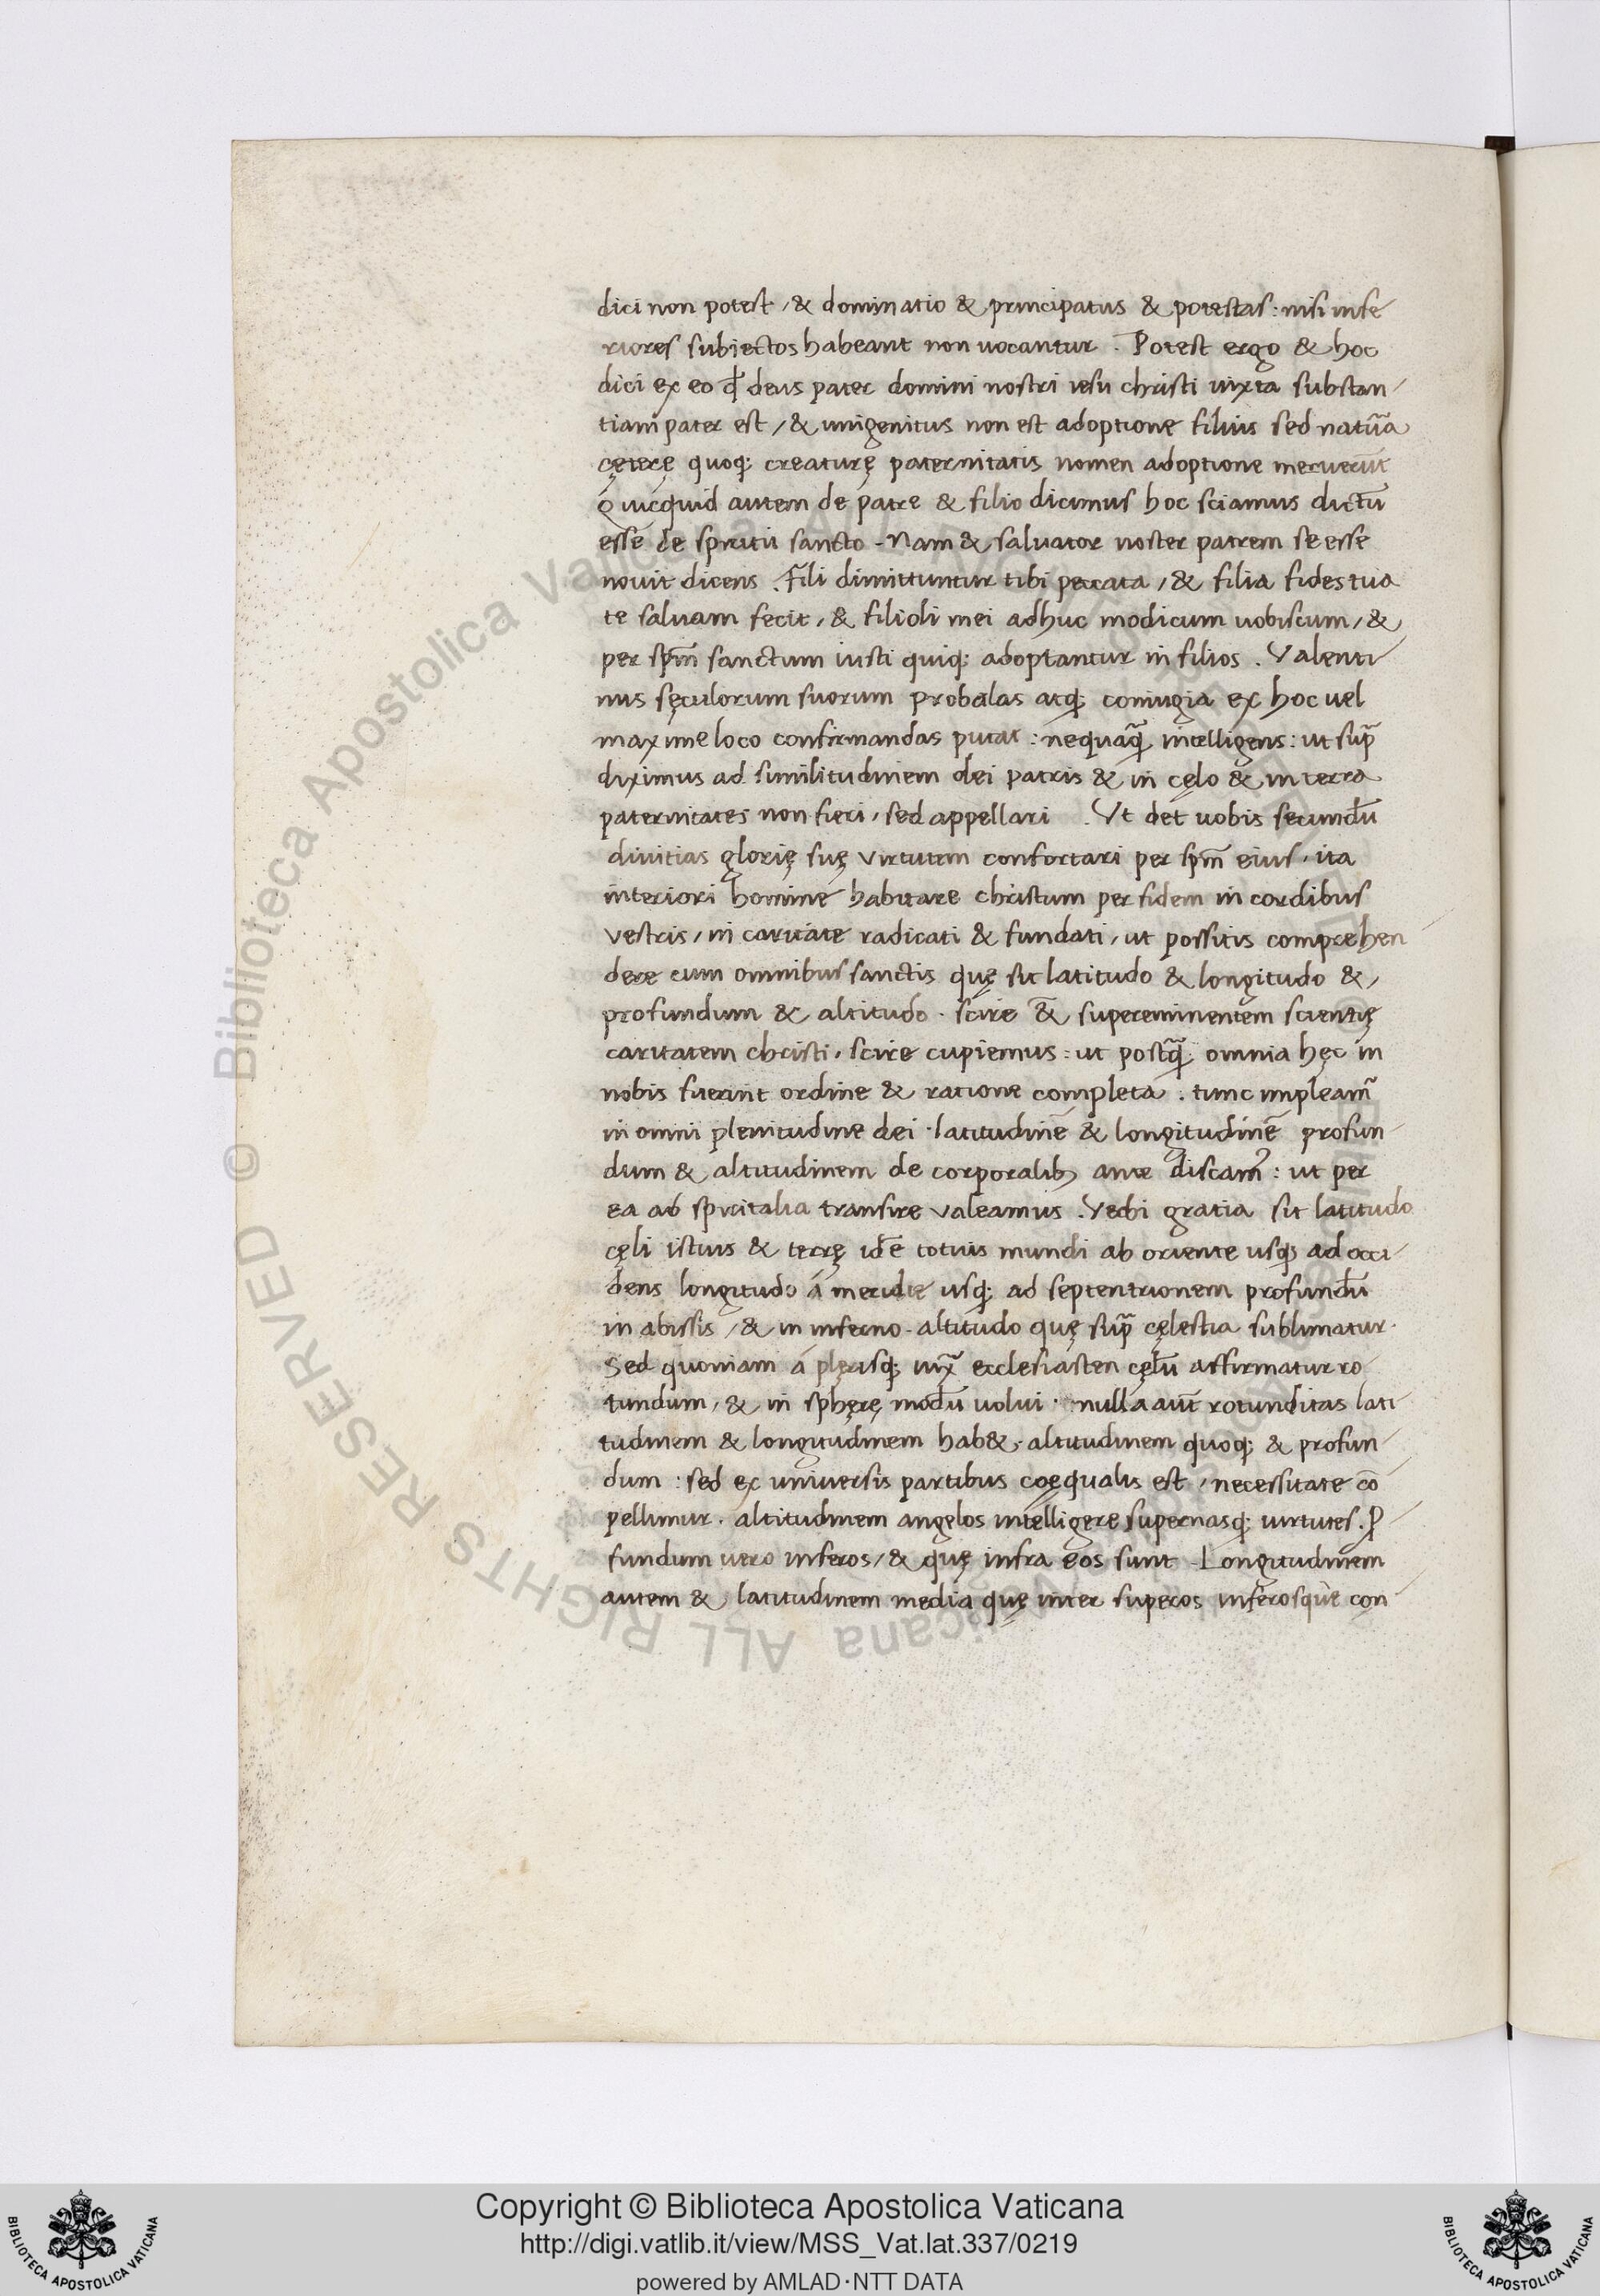 dici non potest, & dominatio & principatus & potestas: nisi infe
riores subiectos habeant non uocantur. Potest ergo & hoc
dici ex eo qđ deus pater domini nostri iesu christi iuxta substan
tiam pater est, & unigenitus non est adoptione filius sed natūa
cęterę quoq; creaturę paternitatis nomen adoptione meruerūt
Quicquid autem de patre & filio dicimus hoc sciamus dictū
esse de spiritu sancto. Nam & saluator noster patrem se esse
nouit dicens. Fili dimittuntur tibi peccata, & filia fides tua
te saluam fecit, & filioli mei adhuc modicum uobiscum, &
per spm̄ sanctum iusti quiq; adoptantur in filios. Valenti
nus sęculorum suorum probalas atq; coniugia ex hoc uel
maxime loco confirmandas putat: nequaq̄ intelligens: ut sup̄
diximus ad similitudinem dei patris & in cęlo & in terra
paternitates non fieri, sed appellari. Vt det uobis secundū
diuitias glorię suę virtutem confortari per spm̄ eius, ita
interiori homine habitare christum per fidem in cordibus
vestris, in caritate radicati & fundati, ut possitis comprehen
dere cum omnibus sanctis quę sit latitudo & longitudo &
profundum & altitudo. scire &̄ supereminentem scientię
caritatem christi, scire cupiemus: ut postq̄ omnia hęc in
nobis fuerint ordine & ratione completa. tunc impleam̄
in omni plenitudine dei. latitudinē & longitudinē profun
dum & altitudinem de corporalib; ante discam̄: ut per
ea ab spiritalia transire valeamus. Verbi gratia sit latitudo
cęli istius & terrę idē totius mundi ab oriente usq; ad occi
dens longitudo á meridie usq; ad septentrionem profundū
in abissis, & in inferno. altitudo quę sup̄ cęlestia sublimatur.
Sed quoniam á plerisq; iux̄ ecclesiasten cęlū affirmatur ro
tundum, & in spherę modū uolui. nulla aūt rotunditas lati
tudinem & longitudinem hab&. altitudinem quoq; & profun
dum: sed ex uniuersis partibus coęqualis est, necessitate cō
pellimur. altitudinem angelos intelligere supernasq; uirtutes. ꝓ
fundum uero inferos, & quę infra eos sunt. Longitudinem
autem & latitudinem media quę inter superos inferosque con
© Biblioteca Apostolica Vaticana ALL RIGHTS RESERVED
Copyright © Biblioteca Apostolica Vaticana
http://digi.vatlib.it/view/MSS_Vat.lat.337/0219
powered by AMLAD·NTT DATA
BIBLIOTECA APOSTOLICA VATICANA
BIBLIOTECA APOSTOLICA VATICANA